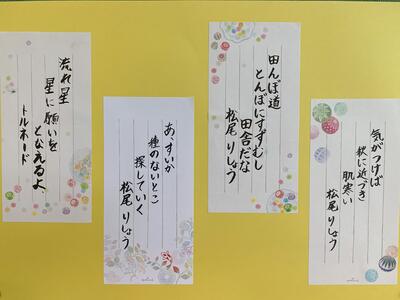 田んぼ道
とんぼにすずむし
田舎だな
松尾りしょう
気がつけば
秋に近づき
肌寒い
松尾りしょう
流れ星
星に願いを
となえるよ
トルネード
あ、すいか
種のないとこ
探していく
松尾りしょう